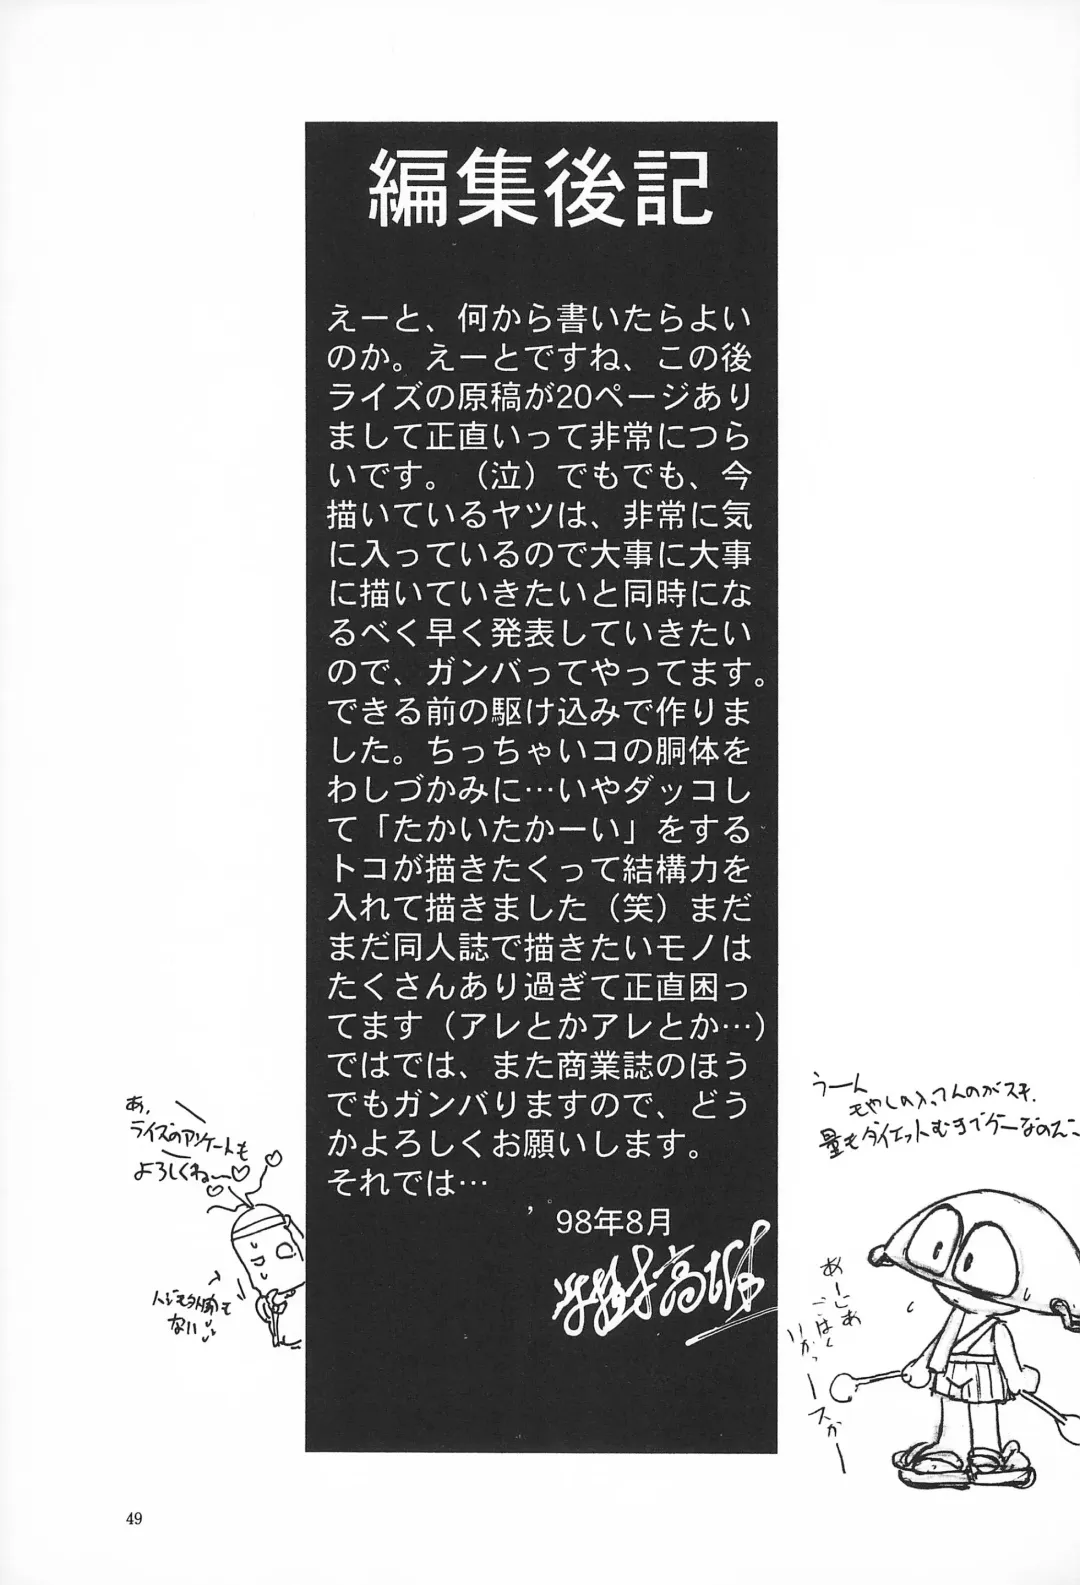 編集後記
えーと、何から書いたらよい
のか。えーとですね、この後
ライズの原稿が20ページあり
まして正直いって非常につら
いです。（泣）でもでも、今
描いているヤツは、非常に気
に入っているので大事に大事
に描いていきたいと同時にな
るべく早く発表していきたい
ので、ガンバってやってます。
できる前の駆け込みで作りま
した。ちっちゃいコの胴体を
わしづかみに…いやダッコし
て「たかいたかーい」をする
トコが描きたくって結構力を
入れて描きました（笑）まだ
まだ同人誌で描きたいモノは
たくさんあり過ぎて正直困っ
てます（アレとかアレとか…）
ではでは、また商業誌のほう
でもガンバりますので、どう
かよろしくお願いします。
それでは…
’98年8月
あ、
ライズのアンケートも
よろしくね〜
ない
うーん
量もダイエットむきで
49